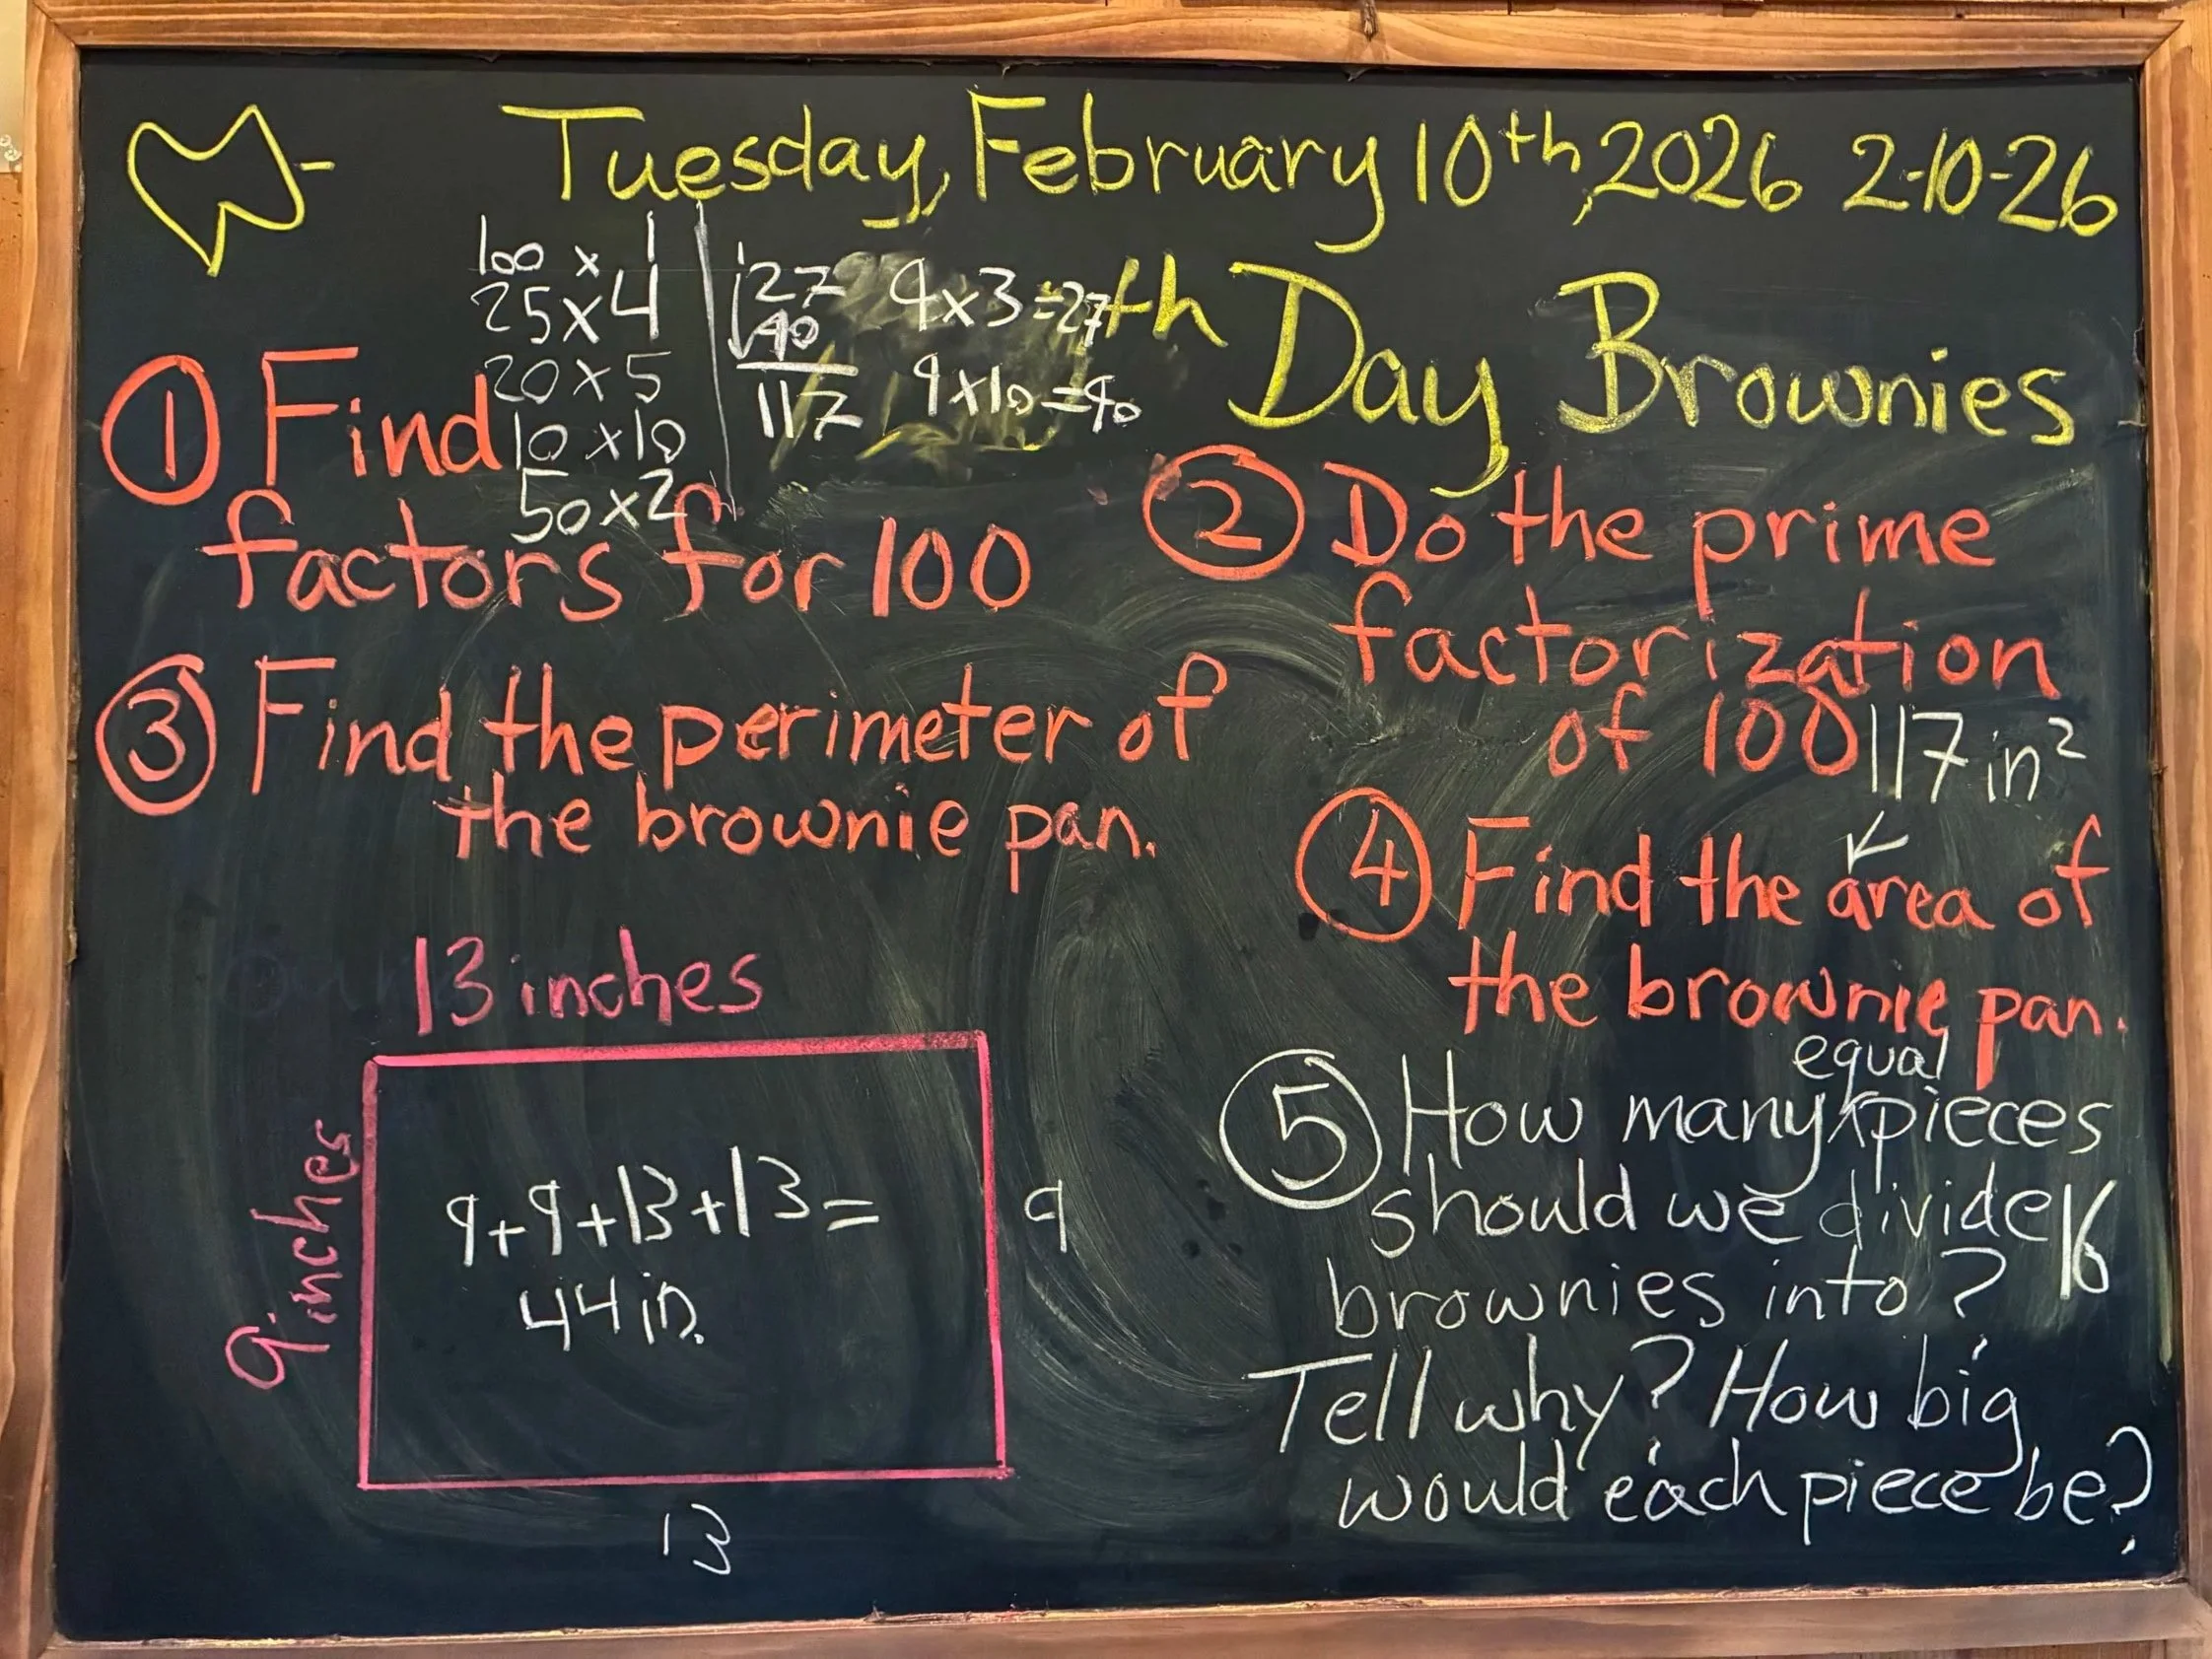 Tuesday, February 10th, 2026 2-10-26
th Day Brownies
100 x 1
25 x 4
20 x 5
10 x 10
50 x 2
1
27
90
117
9 x 3 = 27
9 x 10 = 90
① Find
factors for 100
② Do the prime
factorization
of 100
③ Find the perimeter of
the brownie pan.
117 in²
④ Find the area of
the brownie pan.
13 inches
9 inches
9+9+13+13=
44 in.
9
13
equal
⑤ How many pieces
should we divide
brownies into? 16
Tell why? How big
would each piece be?